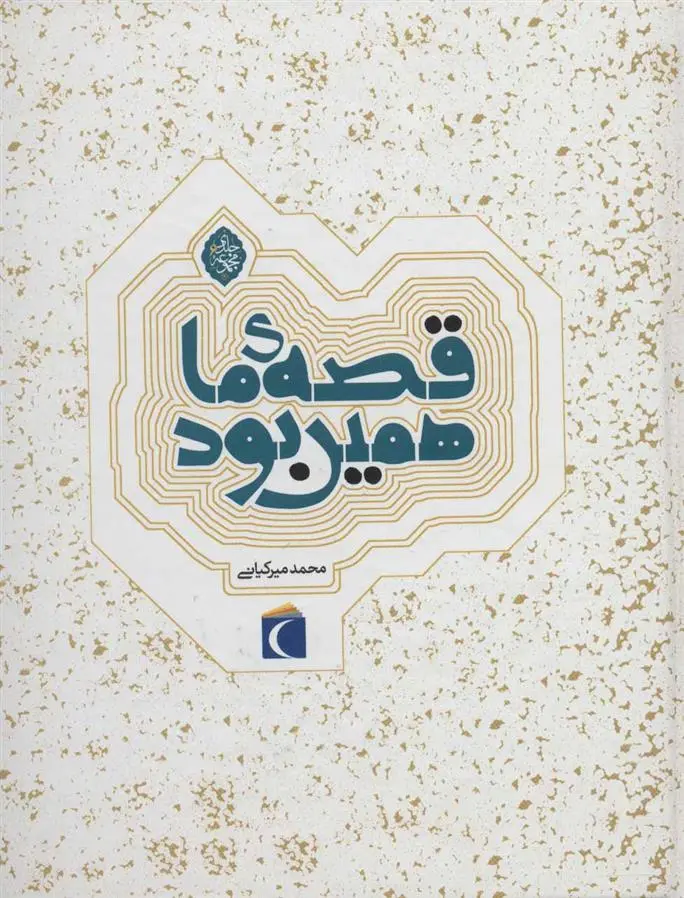 مجموعهٔ
۶ جلدی
قصهٔ ما
همین بود
محمد میرکیانی